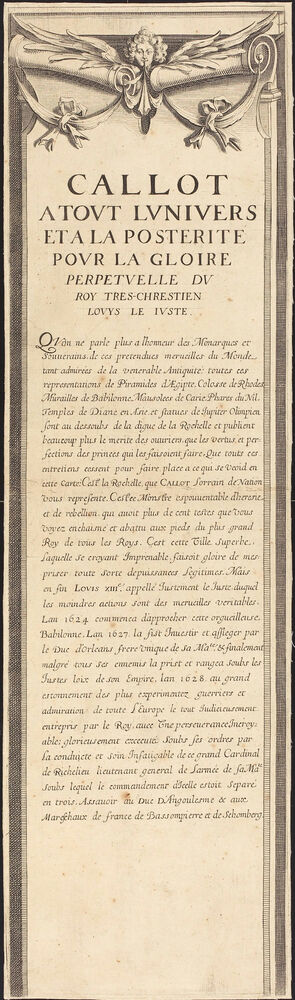 CALLOT
A TOVT LVNIVERS
ET A LA POSTERITE
POVR LA GLOIRE
PERPETVELLE DV
ROY TRES-CHRESTIEN
LOVYS LE IVSTE.
QVon ne parle plus a lhonneur des Monarques et
Souuerains, de ces pretendues merueilles du Monde
tant admirées de la venerable Antiquité: toutes ces
representations de Piramides d'Ægipte. Colosse de Rhodes
Murailles de Babilonne, Mausolees de Carie. Phares du Nil.
Temples de Diane en Asie et statues de Iupiter Olimpien
sont au dessoubs de la digue de la Rochelle et publient
beaucoup plus le merite des ouuriers que les vertus et per-
fections des princes qui les faisoient faire. Que touts ces
entretiens cessent pour faire place a ce qui se veoid en
cette carte: C'est la Rochelle, que CALLOT Lorrain de Nation
vous represente. C'est ce Monstre espouuentable d'heresie
et de rebellion, qui auoit plus de cent testes que vous
voyez enchaisné et abattu aux pieds du plus grand
Roy de tous les Roys. C'est cette Ville Superbe,
Laquelle se croyant Imprenable, faisoit gloire de mes-
priser toute sorte depuissances Legitimes. Mais
en fin LOVIS XIII.e appellé Iustement le Iuste duquel
les moindres actions sont des merueilles veritables.
Lan 1624 commenca dapprocher cette orgueilleuse
Babilonne, Lan 1627. la fist Inuestir et assieger par
le Duc d'Orleans frere Vnique de Sa Ma.te & finalement
malgré tous ses ennemis la prist et rangea soubs les
Iustes loix de son Empire, lan 1628. au grand
estonnement des plus experimentez guerriers et
admiration de toute L'europe le tout Iudicieusement
entrepris par le Roy, auec Vne perseuerance Increy-
able: glorieusement executé Soubs ses ordres par
La conduicte et soin Infatigable de ce grand Cardinal
de Richelieu lieutenant general de Larmée de sa Ma.te
Soubs lequel le commandement d'Icelle estoit Separé
en trois. Assauoir au Duc D'Angoulesme & aux
Mareschaux de france de Bassompierre et de Schomberg.